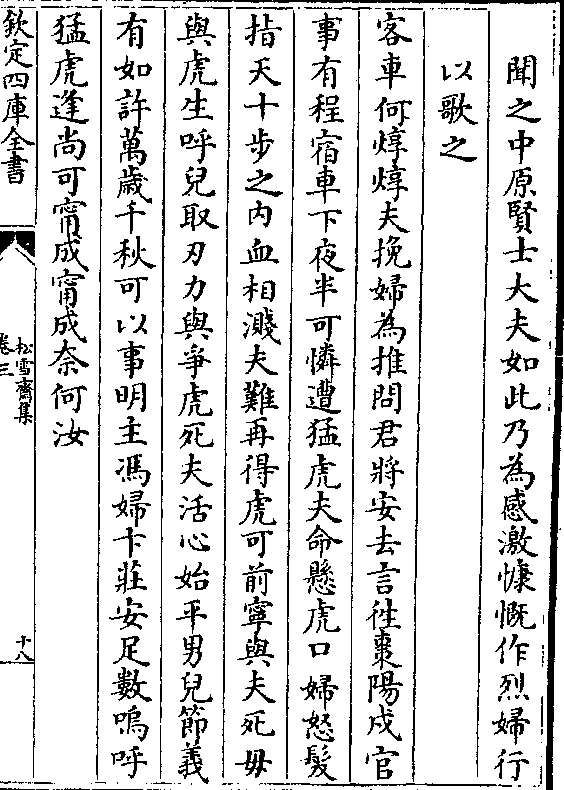 聞之中原賢士大夫如此乃為感激慷慨作烈婦行
以歌之
客車何焞焞夫挽婦為推問君將安去言徃棗陽戍官
事有程宿車下夜半可憐遭猛虎夫命懸虎口婦怒髮
指天十步之內血相濺夫難再得虎可前寧與夫死毋
與虎生呼兒取刃力與爭虎死夫活心始平男兒節義
有如許萬歲千秋可以事明主馮婦卞莊安足數嗚呼
猛虎逢尚可甯成甯成奈何汝
欽定四庫全書
松雪齋集
卷三
十八